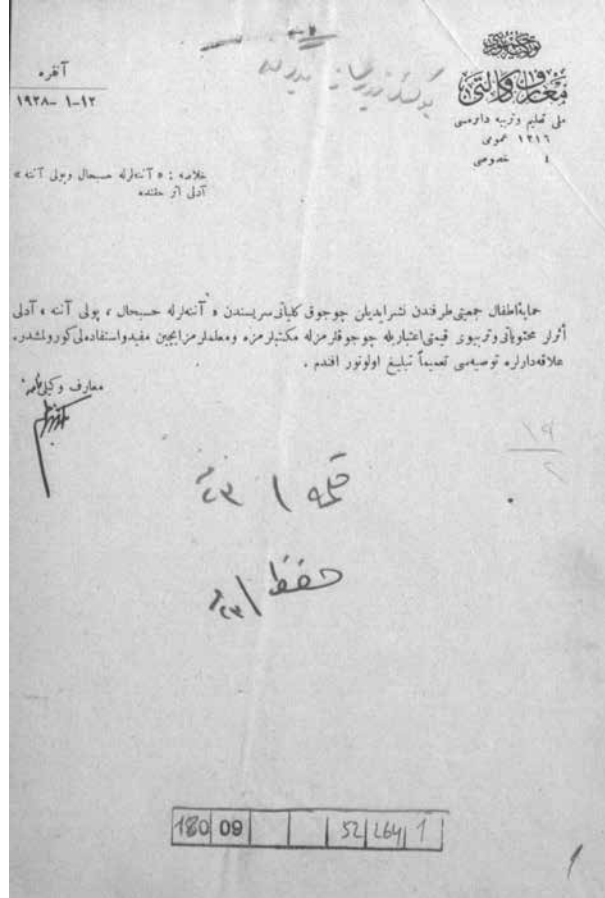 توركيه جمهوريتی
معارف وكالتی
ملی تعليم وتربيه دائره‌سی
١٢١٦ عمومی
٤ خصوصی
آنقره
١٢-١-١٩٢٨
خلاصه : « آننه‌لرله حسبحال وپولی آننه »
آدلی اثر حقنده
حمايۀ اطفال جمعيتی طرفندن نشر ايديلن چوجوق كلياتی سريسندن « آننه‌لرله حسبحال ، پولی آننه » آدلی
أثرلر محتوياتی وتربيوی قيمتی اعتباريله چوجوقلرمزله مكتبلرمزه ومعلملرمز ايچين مفيد واستفاده‌لی كورولمشدر.
علاقه‌دارلره توصيه‌سی تعميماً تبليغ اولونور افندم .
معارف وكيلی نامنه
١٩
٢
قلمه ٢٣/١
حفظ ٢٣/١
180 09 52 264 1
1